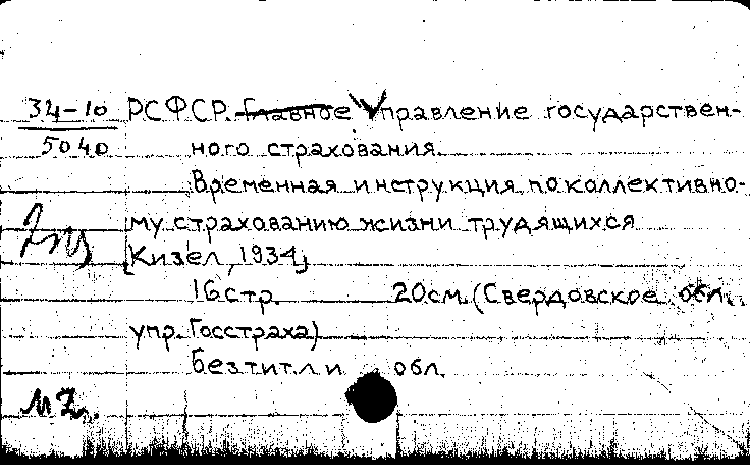 34-10 РСФСР. Главное Управление государствен-
5040 ного страхования.
Временная инструкция по коллективно-
му страхованию жизни трудящихся
[Кизел, 1934]
16 стр. 20 см. (Свердовское обл.
упр. Госстраха)
без тит. л и обл.